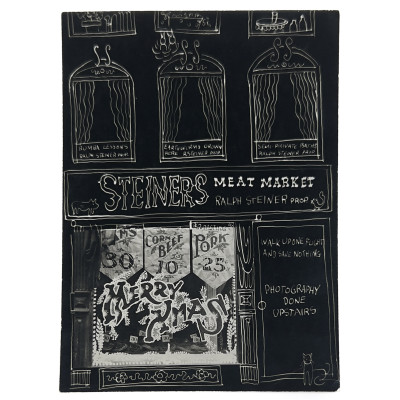 RUMBA LESSONS
RALPH STEINER PROP.
EARTHWORMS GROWN
HERE R STEINER PROP
SEMI PRIVATE BATHS
RALPH STEINER PROP.
STEINERS MEAT MARKET
RALPH STEINER PROP.
30
CORNED
BEEF
10
PORK
25
MERRY
XMAS
WALK UP ONE FLIGHT
AND SAVE NOTHING
PHOTOGRAPHY
DONE
UPSTAIRS